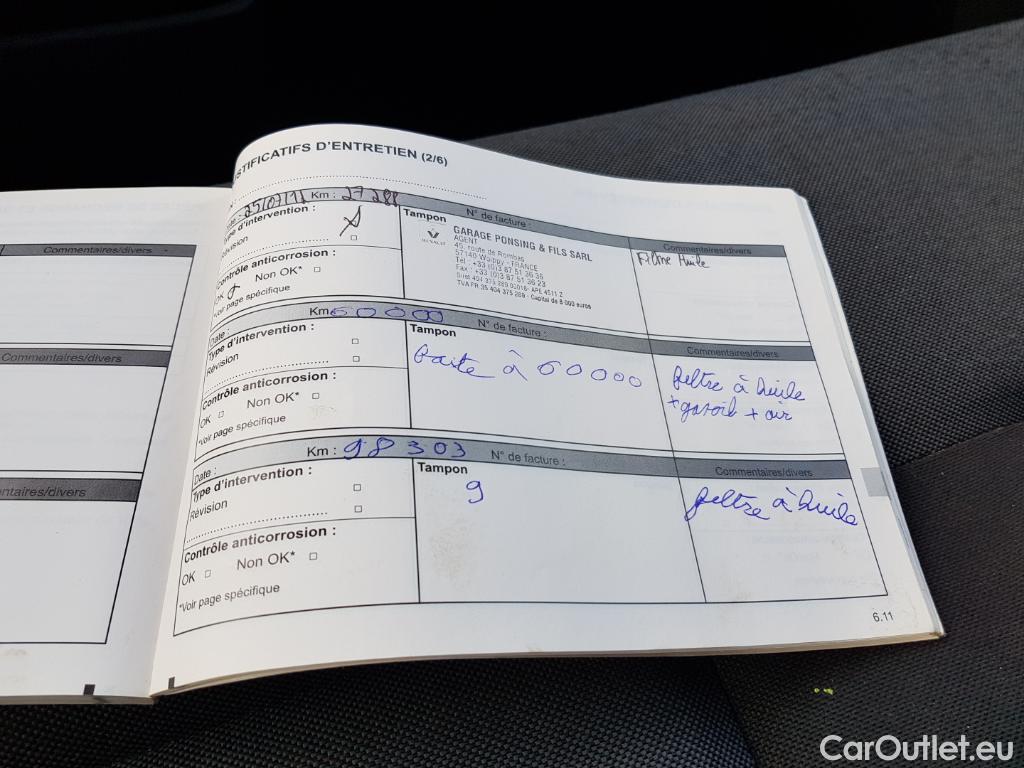 STIFICATIFS D'ENTRETIEN (2/6)
Km : 27 288
N° de facture :
Type d'intervention :
Révision
Contrôle anticorrosion :
OK Non OK*
*Voir page spécifique
Tampon
RENAULT
GARAGE PONSING & FILS SARL
AGENT
45, route de Rombas
57140 Woippy - FRANCE
Tél : +33 (0)3 87 51 36 36
Fax : +33 (0)3 87 51 36 23
Capital de 8 000 euros
Commentaires/divers
Filtre Huile
Date : Km 60000 N° de facture :
Type d'intervention :
Révision
Contrôle anticorrosion :
OK Non OK*
*Voir page spécifique
Tampon
Faite à 60000
Commentaires/divers
filtre à huile
+ gasoil + air
Date : Km : 98 303 N° de facture :
Type d'intervention :
Révision
Contrôle anticorrosion :
OK Non OK*
*Voir page spécifique
Tampon
9
Commentaires/divers
filtre à huile
6.11
Commentaires/divers
Commentaires/divers
ntaires/divers
CarOutlet.eu